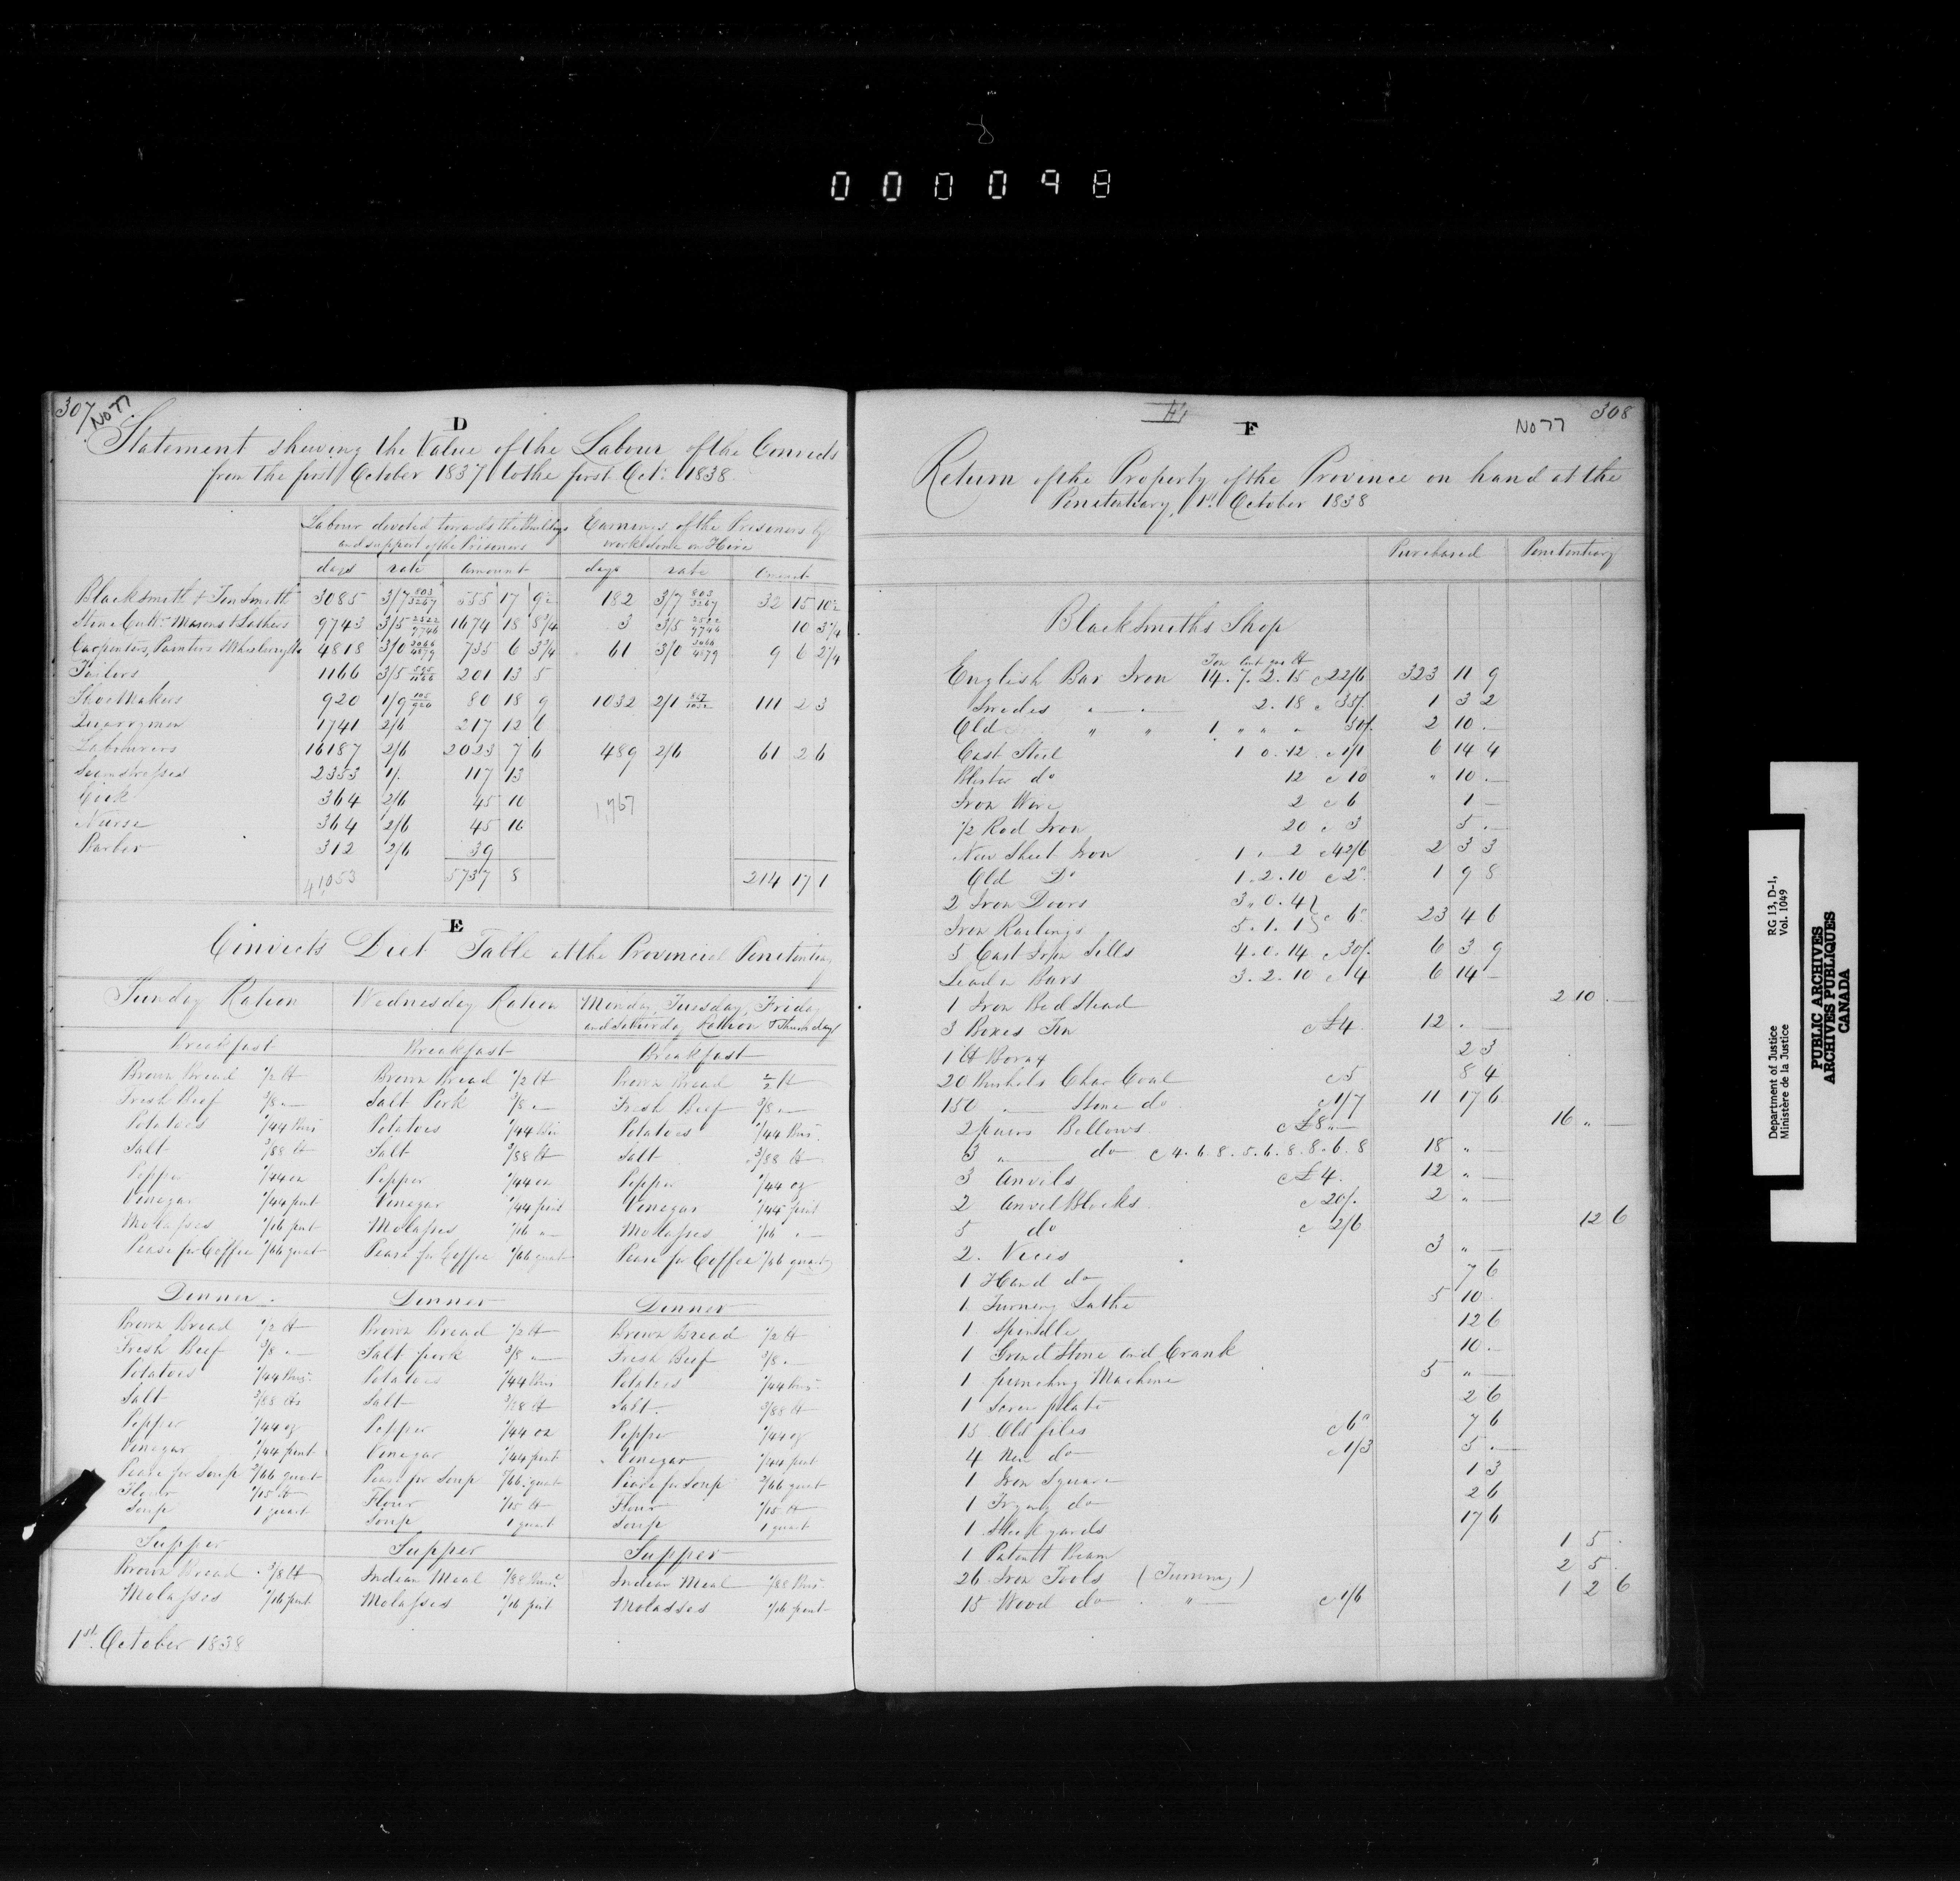 000098
307
No 77
D
Statement shewing the Value of the Labour of the Convicts
from the first October 1837 to the first Oct: 1838.
Labour devoted towards the Buildings and support of the Prisoners
Earnings of the Prisoners by work done on Hire
days rate amount days rate Amount
Blacksmith & Tinsmith 3085 3/7 803/3267 555 17 9½ 182 3/7 803/3267 32 15 10½
Stone Cutts Masons & Lathers 9743 3/5 2522/9746 1674 18 8¾ 3 3/5 2522/9746 10 3¼
Carpenters, Painters 4818 3/0 3066/4879 735 6 3¾ 61 3/0 3066/4879 9 6 2¼
Tailors 1166 3/5 595/1166 201 13 5
Shoe Makers 920 1/9 80 18 9 1032 2/1 111 2 3
Quarrymen 1741 2/6 217 12 6
Labourers 16187 2/6 2023 7 6 489 2/6 61 2 6
Seamstresses 2353 1/. 117 13
Cook 364 2/6 45 10
1,767
Nurse 364 2/6 45 10
Barber 312 2/6 39
41,053 5737 8 214 17 1
E
Convicts Diet Table at the Provincial Penitentiary
Sunday Ration Wednesday Ration Monday, Tuesday, Friday
and Saturday Ration & Thursday
Breakfast Breakfast Breakfast
Brown Bread 1/2 lt Brown Bread 1/2 lt Brown Bread 1/2 lt
Fresh Beef 3/8 " Salt Pork 3/8 " Fresh Beef 3/8 "
Potatoes 1/44 Bus Potatoes 1/44 Bus Potatoes 1/44 Bus.
Salt 3/88 lt Salt 3/88 lt Salt 3/88 lt
Pepper 1/44 oz Pepper 1/44 oz Pepper 1/44 oz
Vinegar 1/44 pint Vinegar 1/44 pint Vinegar 1/44 pint
Molasses 1/16 pint Molasses 1/16 " Molasses 1/16 "
Pease for Coffee 1/66 quart Pease for Coffee 1/66 quart Pease for Coffee 1/66 quart
Dinner. Dinner Dinner
Brown Bread 1/2 lt Brown Bread 1/2 lt Brown Bread 1/2 lt
Fresh Beef 3/8 " Salt pork 3/8 " Fresh Beef 3/8 "
Potatoes 1/44 Bus. Potatoes 1/44 Bus Potatoes 1/44 Bus.
Salt 3/88 lt Salt 3/88 lt Salt. 3/88 lt
Pepper 1/44 oz Pepper 1/44 oz Pepper 1/44 oz
Vinegar 1/44 pint Vinegar 1/44 pint Vinegar 1/44 pint
Pease for Soup quart Pease for Soup quart Pease for Soup quart
Flour 1/15 lt Flour 1/15 lt Flour 1/15 lt
Soup 1 quart Soup 1 quart Soup 1 quart
Supper Supper Supper
Brown Bread 3/8 lt Indian Meal 1/88 Bus. Indian Meal 1/88 Bus.
Molasses 1/16 pint Molasses 1/16 pint Molasses 1/16 pint
1st. October 1838
F
No 77
308
Return of the Property of the Province on hand at the
Penitentiary, 1st October 1838
Purchased Penitentiary
Blacksmiths Shop
Ton Cwt qrs lt
English Bar Iron 14.7.2.15 @ 22/6 323 11 9
Swedes " 2.18 " 35/. 1 3 2
Old " " 1 " " " 50/. 2 10 —
Cast Steel 1 0.12 @ 1/1 6 14 4
Blister do 12 @ 10 " 10 —
Iron Wire 2 @ 6 1 —
1/2 Rod Iron 20 @ 3 5 —
New Sheet Iron 1 " 2 @ 42/6 2 3 3
Old Do 1.2.10 @ 2d. 1 9 8
2 Iron Doors 3.0.4
Iron Railings 5.1.1 @ 6d. 23 4 6
5 Cast Iron Sills 4.0.14 @ 30/. 6 3 9
Leaden Bars 3.2.10 @ 4 6 14 —
1 Iron Bed Stead 2 10 —
3 Boxes Tin @ £4. 12 . —
1 lt Borax 2 3
20 Bushels Char Coal @ 5 8 4
150 " Stone do @ 1/7 11 17 6
2 pairs Bellows @ £8 " — 16 " —
3 " do @ 4.6.8.5.6.8.8.6.8 18 " —
3 Anvils @ £4. 12 " —
2 Anvil Blocks @ 20/. 2 " —
5 do @ 2/6 12 6
2. Vices 3 " —
1 Hand do 7 6
1 Turning Lathe 5 10
1 Spindle 12 6
1 Grind Stone and Crank 10 —
1 punching Machine 5 " —
1 Screw plate 2 6
15 Old files @ 6d 7 6
4 New do @ 1/3 5 —
1 Iron Square 1 3
1 Trying do 2 6
1 Steelyards 17 6
1 Patent Beam 1 5
26 Iron Tools (Turning) 2 5
15 Wood do " @ 1/6 1 2 6
Department of Justice
Ministère de la Justice
RG 13, D-1,
Vol. 1049
PUBLIC ARCHIVES
ARCHIVES PUBLIQUES
CANADA